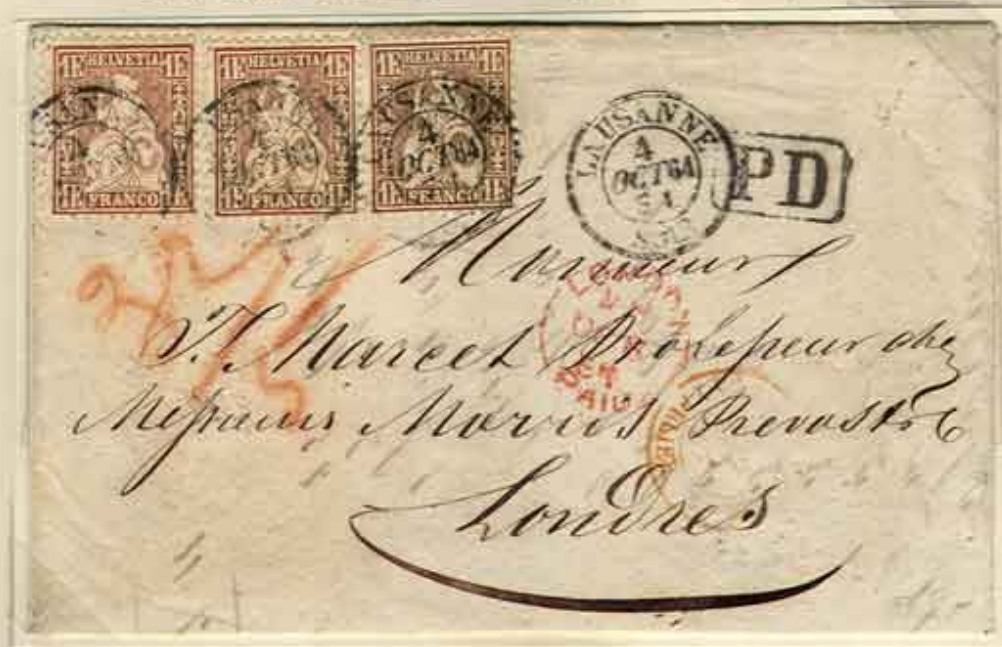 1F HELVETIA 1F 1F HELVETIA 1F 1F HELVETIA 1F
1F FRANCO 1F 1F FRANCO 1F 1F FRANCO 1F
LAUSANNE
4
OCT 64
LAUSANNE
4
OCT 64
PD
Monsieur
Marcet Professeur chez
Messieurs Morris Prevost & Co
Londres
LONDON
PAID